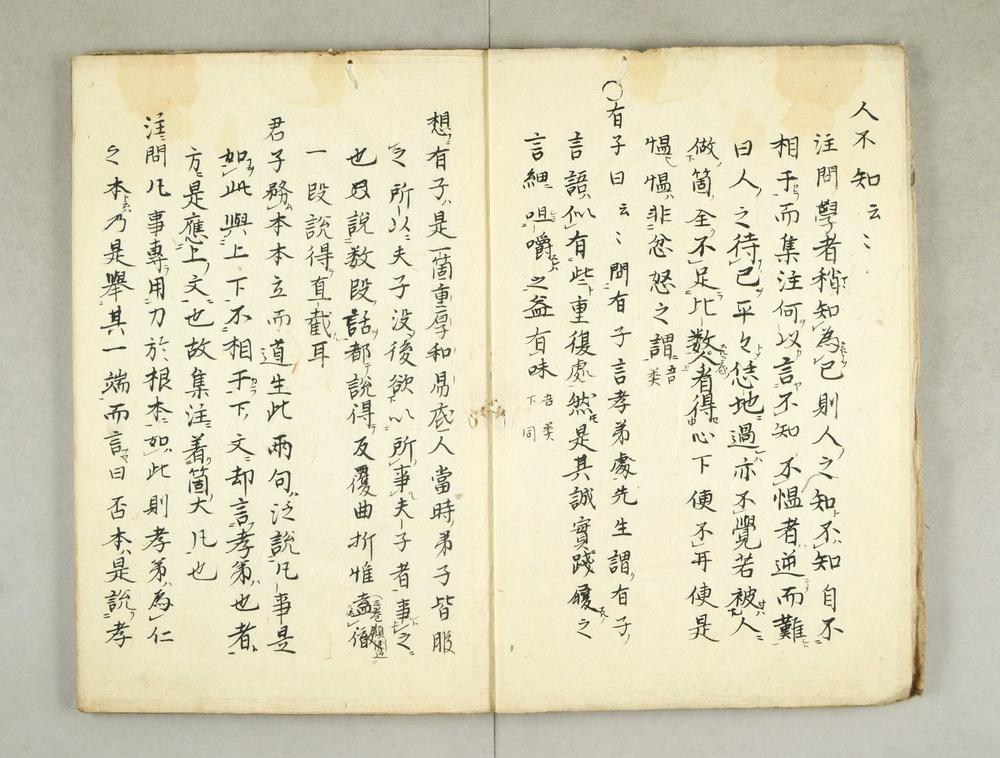 人不知云〻
注問學者稍知為已則人之知不知自不
相干而集注何以言不知不慍者逆而難
曰人之待已平々恁地過亦不覺若被人
做箇全不足比數人者得心下便不甘便是
慍慍非忿怒之謂
○有子曰云〻問有子言孝弟處先生謂有子
言語似有些重復處然是其誠實踐履之
言細咀嚼之益有味
下同
想有子是一箇重厚和易底人當時弟子皆服
之所以夫子沒後欲以所事夫子者事之
也及說數段話都說得反覆曲折惟盍徹
一段說得直截耳
君子務本本立而道生此兩句泛說凡事是
如此與上下不相干下文却言孝弟也者
方是應上文也故集注着箇大凡也
注問凡事專用力於根本如此則孝弟為仁
之本乃是舉其一端而言曰否本是說孝